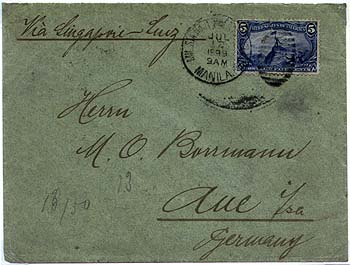 Via Singapore-Suez
JUL
1899
9AM
MANILA
5 5
Herrn
M. O. Borrmann
Aue i/sa
Germany
13